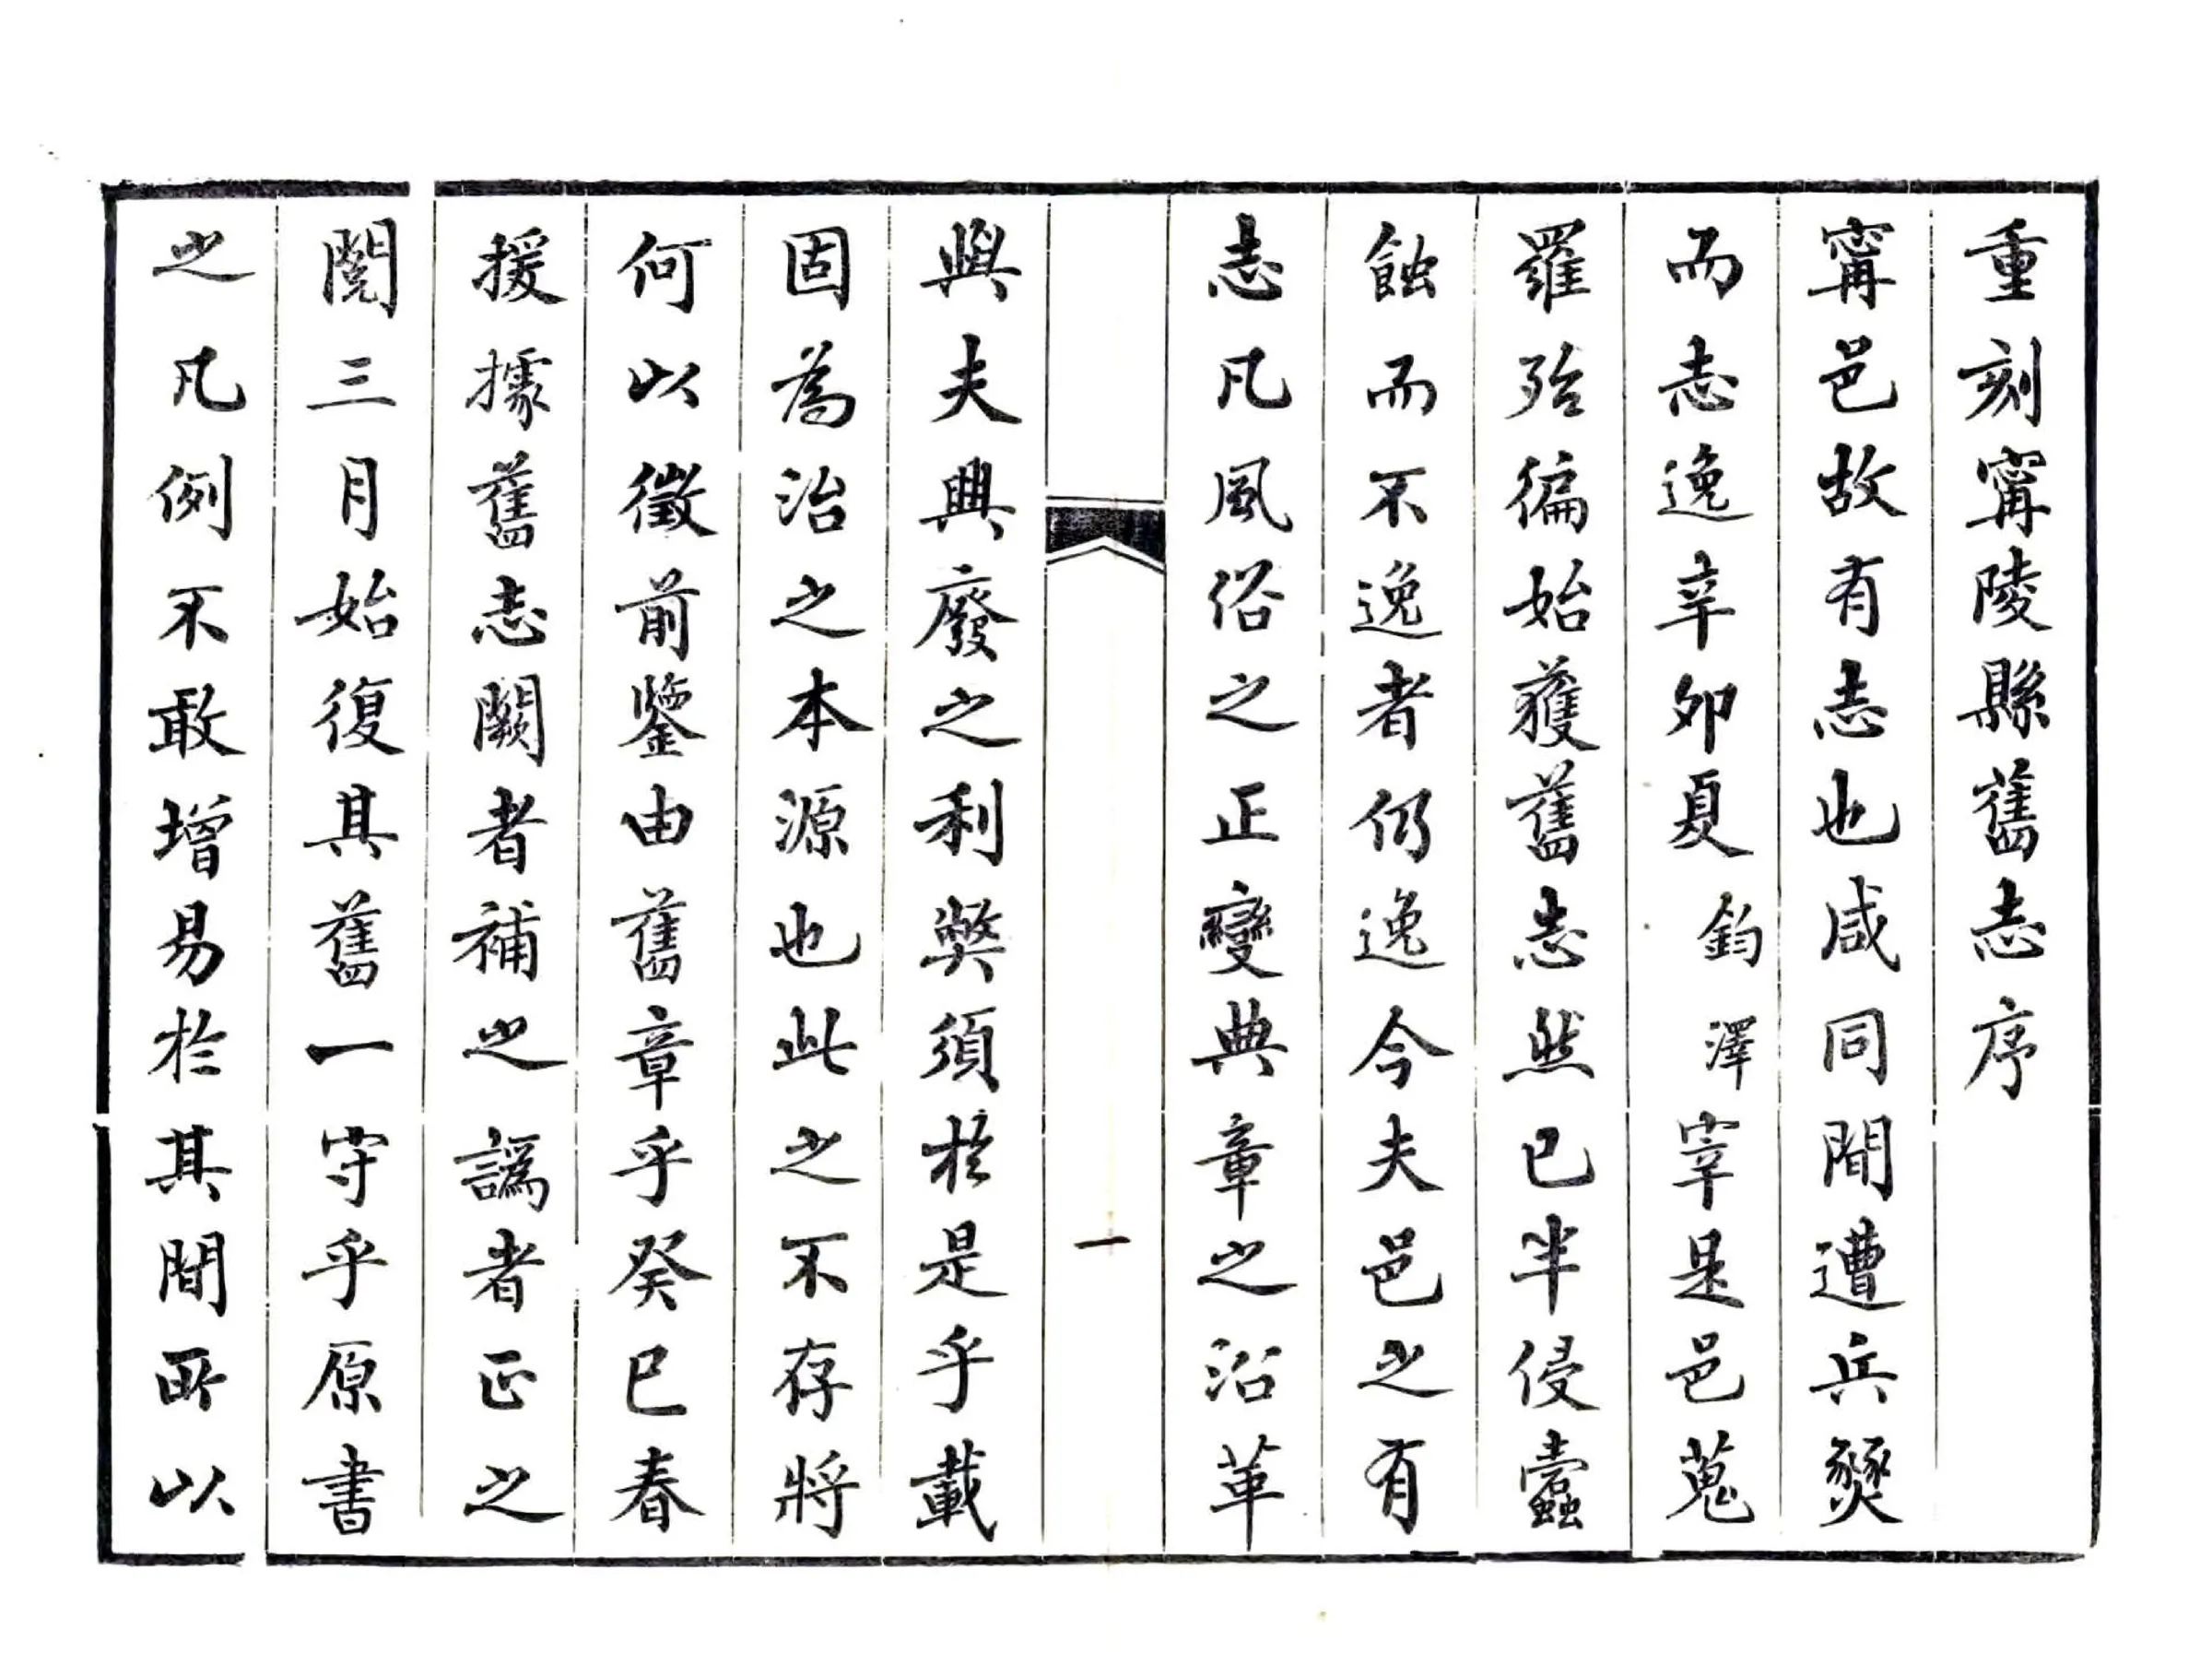 重刻寗陵縣舊志序
寗邑故有志也咸同間遭兵燹
而志逸辛卯夏鈞澤宰是邑蒐
羅殆徧始獲舊志然已半侵蠧
蝕而不逸者仍逸今夫邑之有
志凡風俗之正變典章之沿革
一
與夫興廢之利獘須於是乎載
固為治之本源也此之不存將
何以徵前鑒由舊章乎癸巳春
援據舊志闕者補之譌者正之
閲三月始復其舊一守乎原書
之凡例不敢增易於其間所以